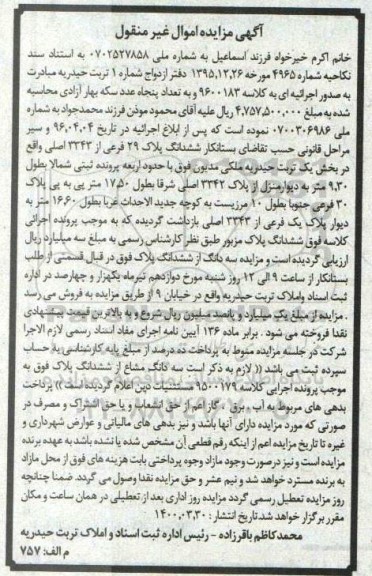 آگهی مزایده اموال غیر منقول
خانم اکرم خیرخواه فرزند اسماعیل به شماره ملی ۰۷۰۲۵۲۷۸۵۸ به استناد سند
نکاحیه شماره ۴۹۶۵ مورخه ۱۳۹۵,۱۲,۲۶ دفتر ازدواج شماره ۱ تربت حیدریه مبادرت
به صدور اجرائیه ای به کلاسه ۹۶۰۰۱۸۳ و به تعداد پنجاه عدد سکه بهار آزادی محاسبه
شده به مبلغ ۴,۷۵۷,۵۰۰,۰۰۰ ریال علیه آقای محمود موذن فرزند محمدجواد به شماره
ملی ۰۷۰۰۳۰۶۹۸۶ نموده است که پس از ابلاغ اجرائیه در تاریخ ۹۶,۰۴,۰۴ و سیر
مراحل قانونی حسب تقاضای بستانکار ششدانگ پلاک ۲۹ فرعی از ۳۳۴۳ اصلی واقع
در بخش یک تربت حیدریه ملکی مدیون فوق با حدود اربعه پرونده ثبتی شمالا بطول
۹,۳۰ متر به دیوار منزل از پلاک ۳۳۴۲ اصلی شرقا بطول ۱۷,۵۰ متر پی به پی پلاک
۳۰ فرعی جنوبا بطول ۱۰ مرزیست به کوچه جدید الاحداث غربا بطول ۱۶,۶۰ متر به
دیوار پلاک یک فرعی از ۳۳۴۳ اصلی بازداشت گردیده که به موجب پرونده اجرائی
کلاسه فوق ششدانگ پلاک مزبور طبق نظر کارشناس رسمی به مبلغ سه میلیارد ریال
ارزیابی گردیده است و مزایده سه دانگ از ششدانگ پلاک فوق در قبال قسمتی از طلب
بستانکار از ساعت ۹ الی ۱۲ روز شنبه مورخ دوازدهم تیرماه یکهزار و چهارصد در اداره
ثبت اسناد واملاک تربت حیدریه واقع در خیابان ۹ از طریق مزایده به فروش می رسد
. مزایده از مبلغ یک میلیارد و پانصد میلیون ریال شروع و به بالاترین قیمت پیشنهادی
نقدا فروخته می شود . برابر ماده ۱۳۶ آیین نامه اجرای مفاد اسناد رسمی لازم الاجرا
شرکت در جلسه مزایده منوط به پرداخت ده درصد از مبلغ پایه کارشناسی به حساب
سپرده ثبت می باشد (( لازم به ذکر است سه دانگ مشاع از ششدانگ پلاک فوق به
موجب پرونده اجرایی کلاسه ۹۵۰۰۱۷۹ مستثنیات دین اعلام گردیده است )) پرداخت
بدهی های مربوط به آب ، برق ، گاز اعم از حق انشعاب و یا حق اشتراک و مصرف در
صورتی که مورد مزایده دارای آنها باشد و نیز بدهی های مالیاتی و عوارض شهرداری و
غیره تا تاریخ مزایده اعم از اینکه رقم قطعی آن مشخص شده یا نشده باشد به عهده برنده
مزایده است و نیز در صورت وجود مازاد وجوه پرداختی بابت هزینه های فوق از محل مازاد
به برنده مسترد خواهد شد و نیم عشر و حق مزایده نقدا وصول می گردد. ضمنا چنانچه
روز مزایده تعطیل رسمی گردد مزایده روز اداری بعد از تعطیلی در همان ساعت و مکان
مقرر برگزار خواهد شد. تاریخ انتشار : ۱۴۰۰,۰۳,۳۰
محمد کاظم باقرزاده - رئیس اداره ثبت اسناد و املاک تربت حیدریه
م الف: ۷۵۷